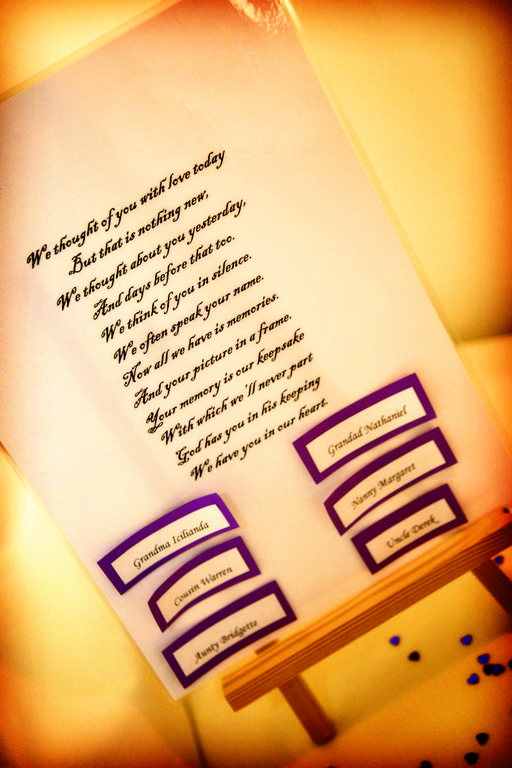 We thought of you with love today
But that is nothing new,
We thought about you yesterday,
And days before that too.
We think of you in silence.
We often speak your name.
Now all we have is memories.
And your picture in a frame.
Your memory is our keepsake
With which we'll never part
God has you in his keeping
We have you in our heart.
Grandma Icilianda
Cousin Warren
Aunty Bridgette
Grandad Nathaniel
Nanny Margaret
Uncle Derek